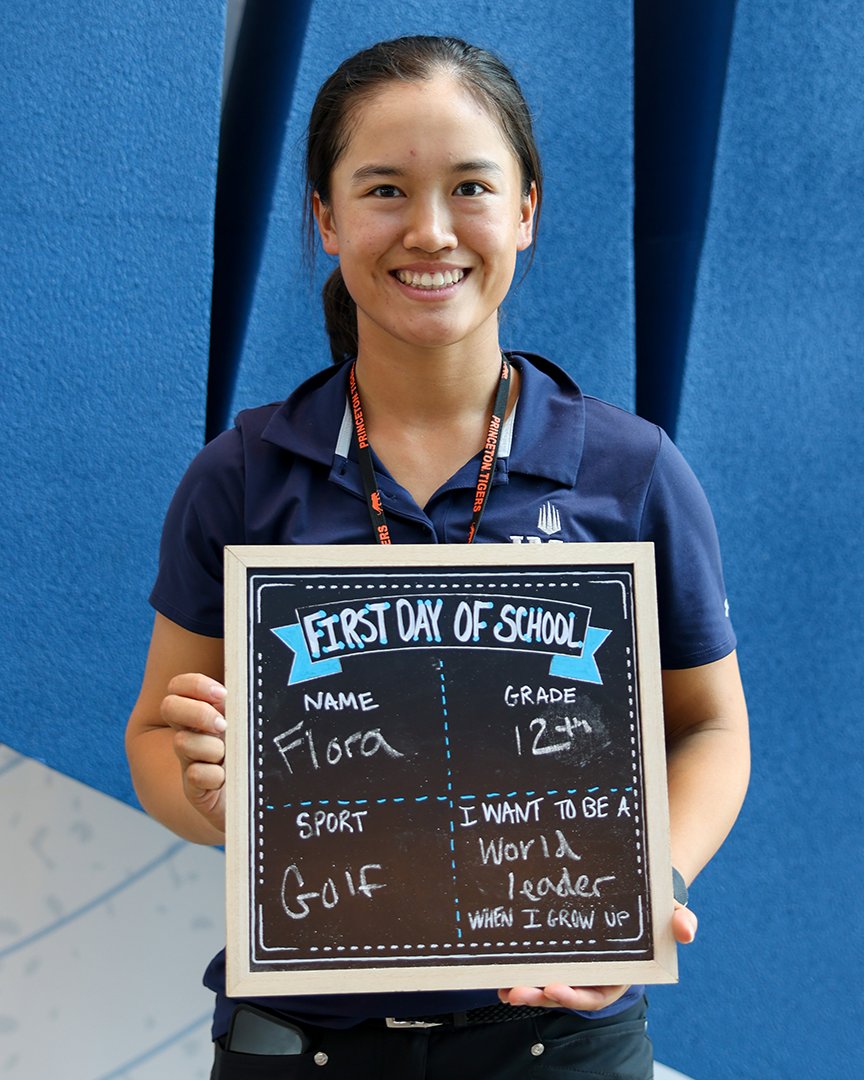 PRINCETON TIGERS
PRINCETON TIGERS
FIRST DAY OF SCHOOL
NAME
Flora
GRADE
12th
SPORT
Golf
I WANT TO BE A
World
leader
WHEN I GROW UP